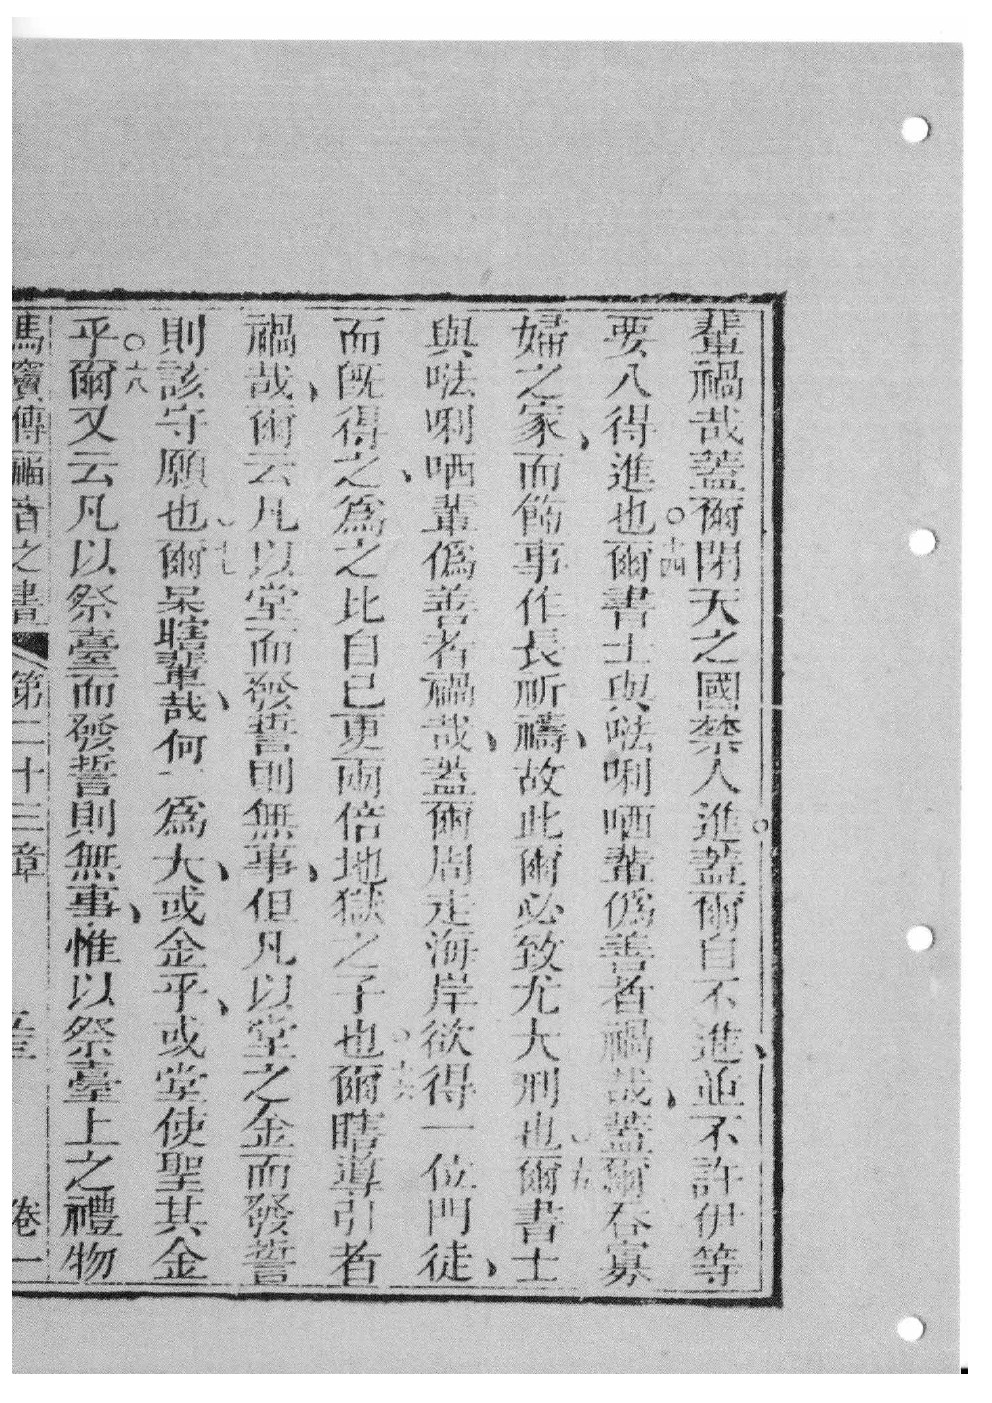 輩禍哉蓋爾閉天之國禁人進。蓋爾自不進、並不許伊等
要入得進也。十四爾書士與呿唎哂輩僞善者禍哉、蓋爾吞寡
婦之家、而飾事作長祈禱、故此爾必致尤大刑也。十五爾書士
與呿唎哂輩僞善者禍哉、蓋爾周走海岸欲得一位門徒、
而既得之、爲之比自已更兩倍地獄之子也。十六爾瞎導引者
禍哉、爾云凡以堂而發誓則無事、但凡以堂之金而發誓
則該守願也。十七爾呆瞎輩哉、何一爲大、或金乎、或堂使聖其金
乎。十八爾又云凡以祭臺而發誓則無事、惟以祭臺上之禮物
馬竇傳福音之書 第二十三章 卷一